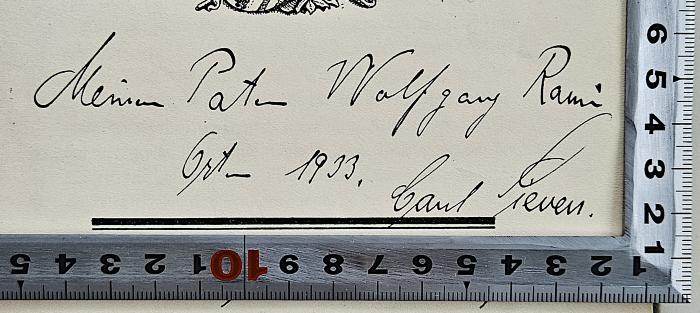 Meinem Paten Wolfgang
Ostern 1933.
Carl
6 5 4 3 2 1
5 4 3 2 1 10 9 8 7 6 5 4 3 2 1